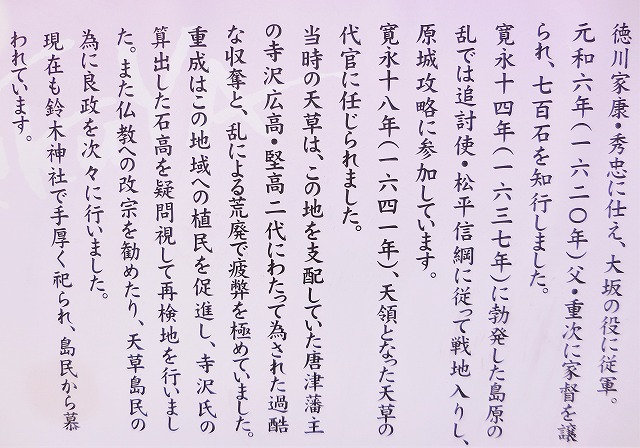 徳川家康・秀忠に仕え、大坂の役に従軍。
元和六年(一六二〇年)父・重次に家督を譲
られ、七百石を知行しました。
寛永十四年(一六三七年)に勃発した島原の
乱では追討使・松平信綱に従って戦地入りし、
原城攻略に参加しています。
寛永十八年(一六四一年)、天領となった天草の
代官に任じられました。
当時の天草は、この地を支配していた唐津藩主
の寺沢広高・堅高二代にわたって為された過酷
な収奪と、乱による荒廃で疲弊を極めていました。
重成はこの地域への植民を促進し、寺沢氏の
算出した石高を疑問視して再検地を行いまし
た。また仏教への改宗を勧めたり、天草島民の
為に良政を次々に行いました。
現在も鈴木神社で手厚く祀られ、島民から慕
われています。